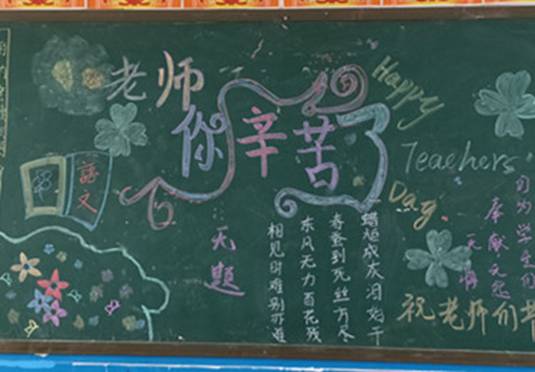 老师
你辛苦了
Happy
Teachers
Day
语文
无题
相见时难别亦难
东风无力百花残
春蚕到死丝方尽
蜡炬成灰泪始干
为学生们
奉献
祝老师们节